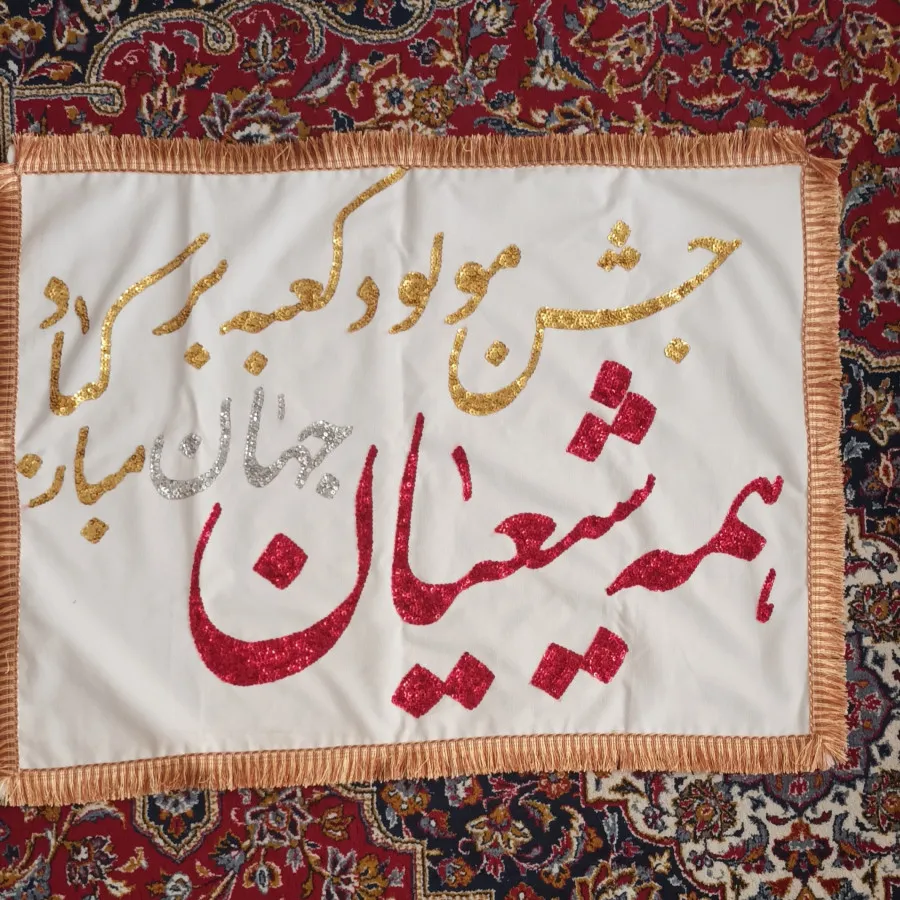 جشن مولود کعبه بر
همه شیعیان جهان مبارکباد